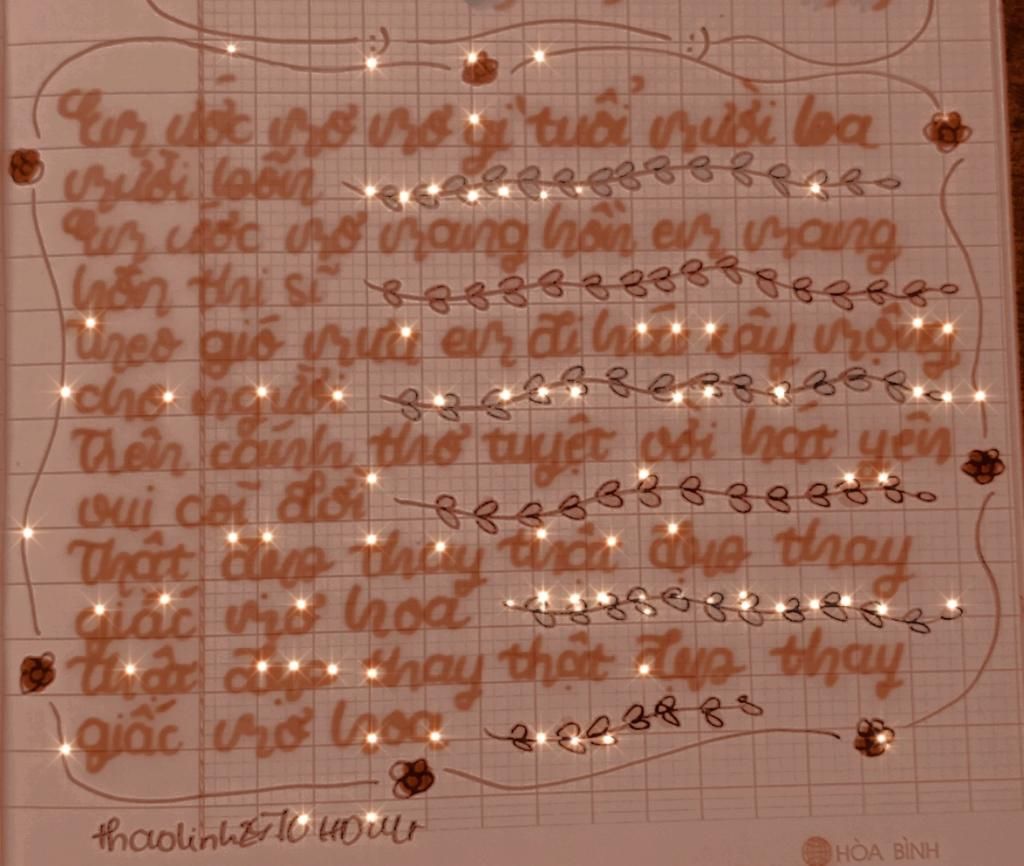 Em ước mơ mơ gì tuổi mười ba
mười bốn
Em ước mơ mang hồn em mang
hồn thi sĩ
theo gió mưa em đi hái cây mộng
cho người
Trên cánh thơ tuyệt vời hát yên
vui cõi đời
Thật đẹp thay thật đẹp thay
giấc mơ hoa
thật đẹp thay thật đẹp thay
giấc mơ hoa
HÒA BÌNH